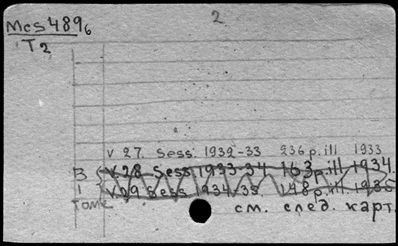 Mcs4896
2
T2
v 27. Sess. 1932-33 236 p. ill 1933
В v. 28 Sess 1933-34 163 p. ill 1934.
1 v. 29 Sess 1934-35 148 p. ill 1935
томе
см. след. карт.